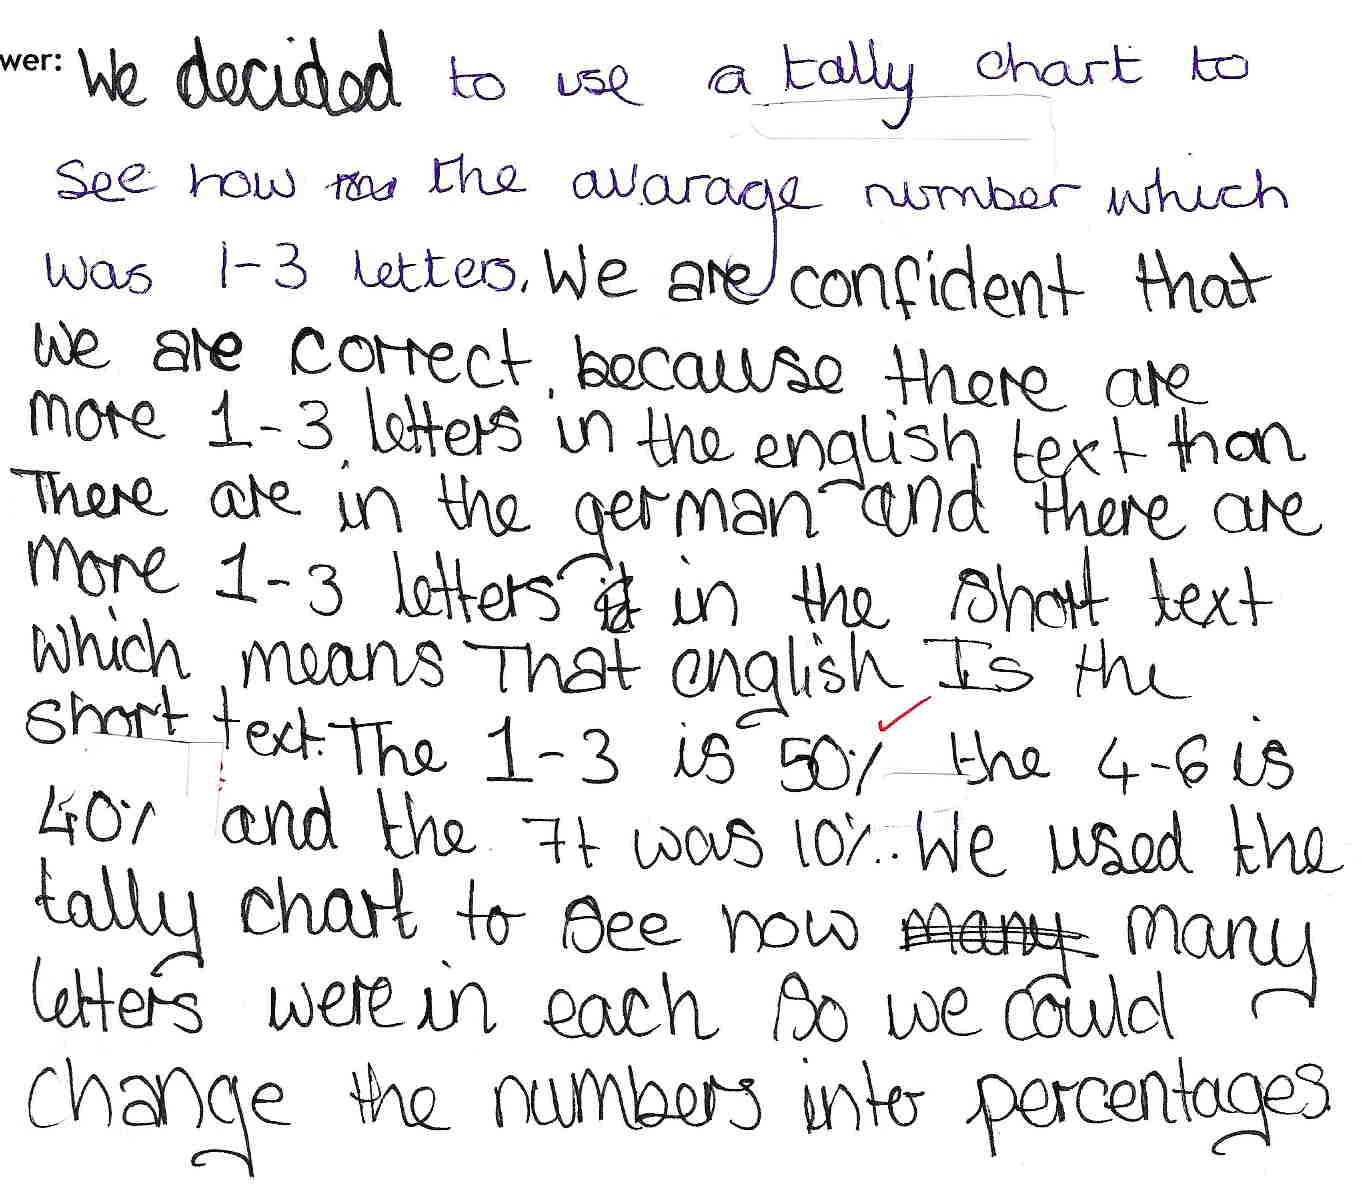 wer: We decided to use a tally chart to
see how the avarage number which
was 1-3 letters. We are confident that
we are correct, because there are
more 1-3 letters in the english text than
There are in the german and there are
more 1-3 letters in the short text
which means That english Is the
short text. The 1-3 is 50% the 4-6 is
40% and the 7+ was 10%. We used the
tally chart to see how many many
letters were in each so we could
change the numbers into percentages